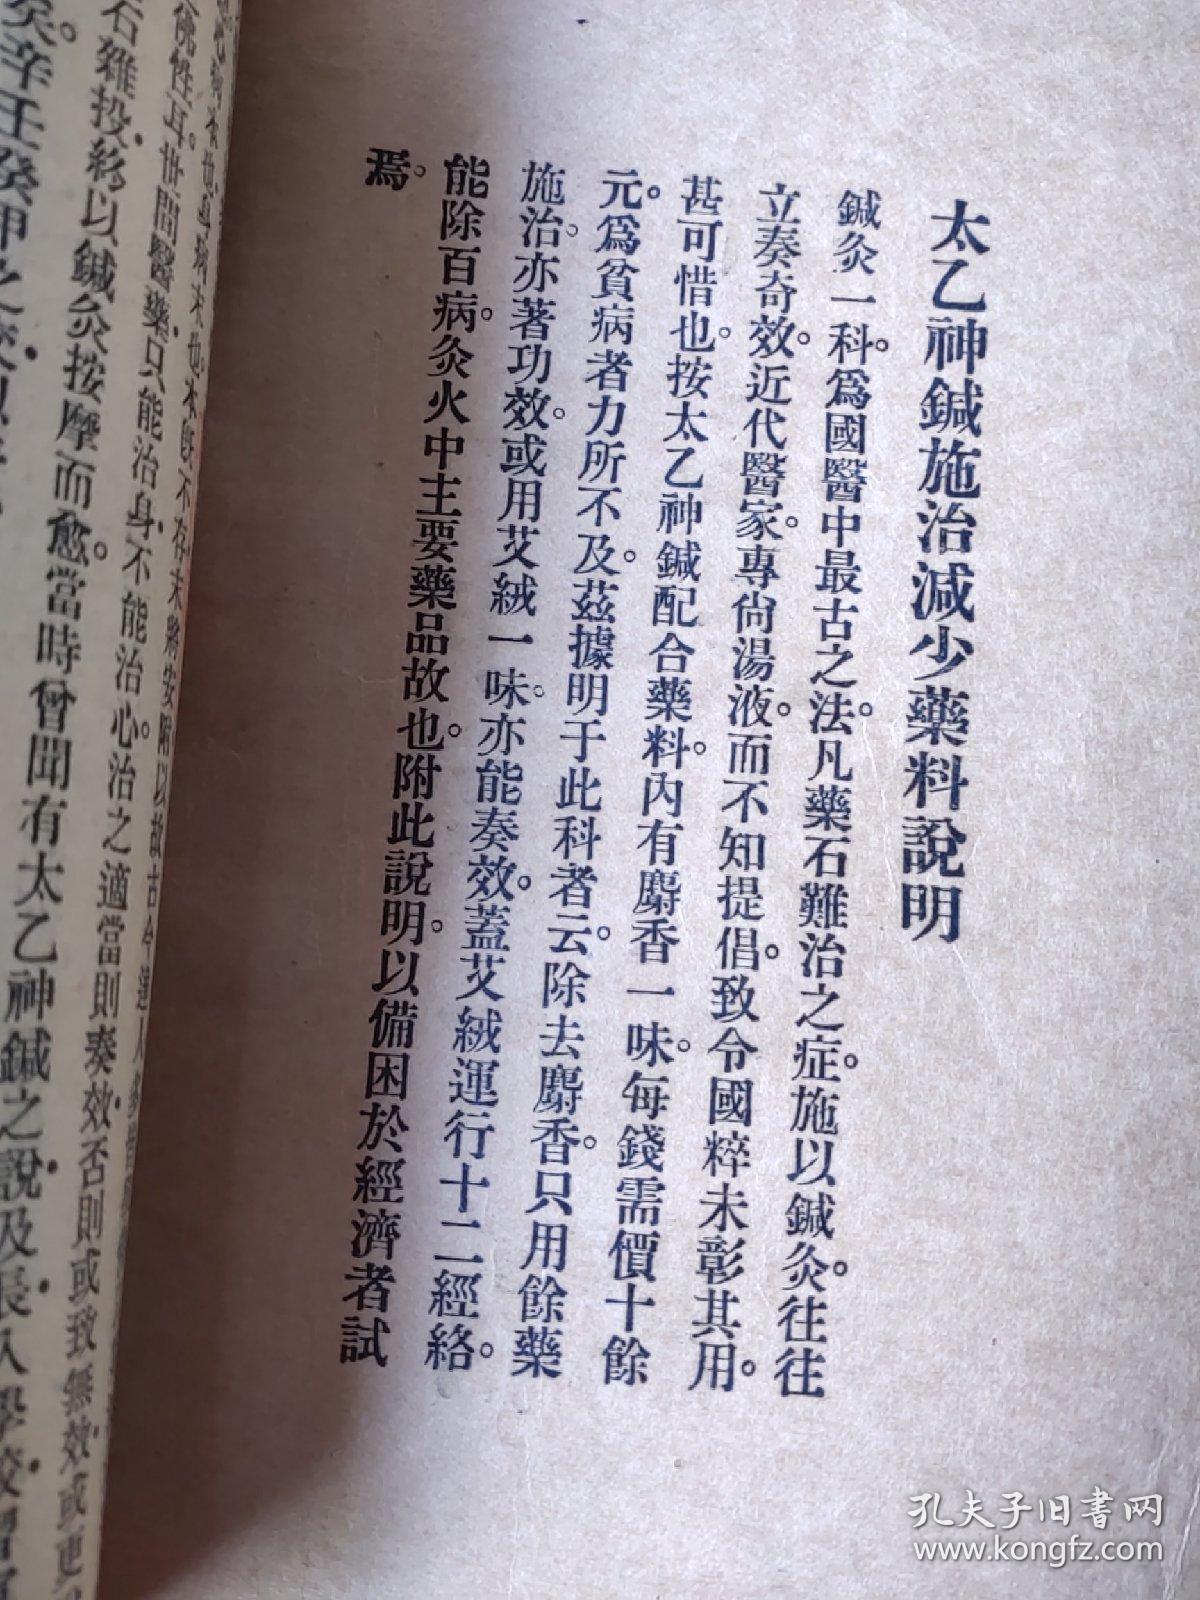 太乙神鍼施治減少藥料說明
鍼灸一科。爲國醫中最古之法。凡藥石難治之症。施以鍼灸。往往
立奏奇效。近代醫家。專尙湯液。而不知提倡。致令國粹未彰其用。
甚可惜也。按太乙神鍼配合藥料。內有麝香一味。每錢需價十餘
元。爲貧病者力所不及。茲據明于此科者云。除去麝香。只用餘藥
施治。亦著功效。或用艾絨一味。亦能奏效。蓋艾絨運行十二經絡。
能除百病。灸火中主要藥品故也。附此說明。以備困於經濟者試
焉。
佛性耳。世間醫藥。只能治身。不能治心。治之適當則奏效。否則或致無效。或更
石雜投。終以鍼灸按摩而愈。當時曾聞有太乙神鍼之說。及長入學校
孔夫子旧书网
www.kongfz.com